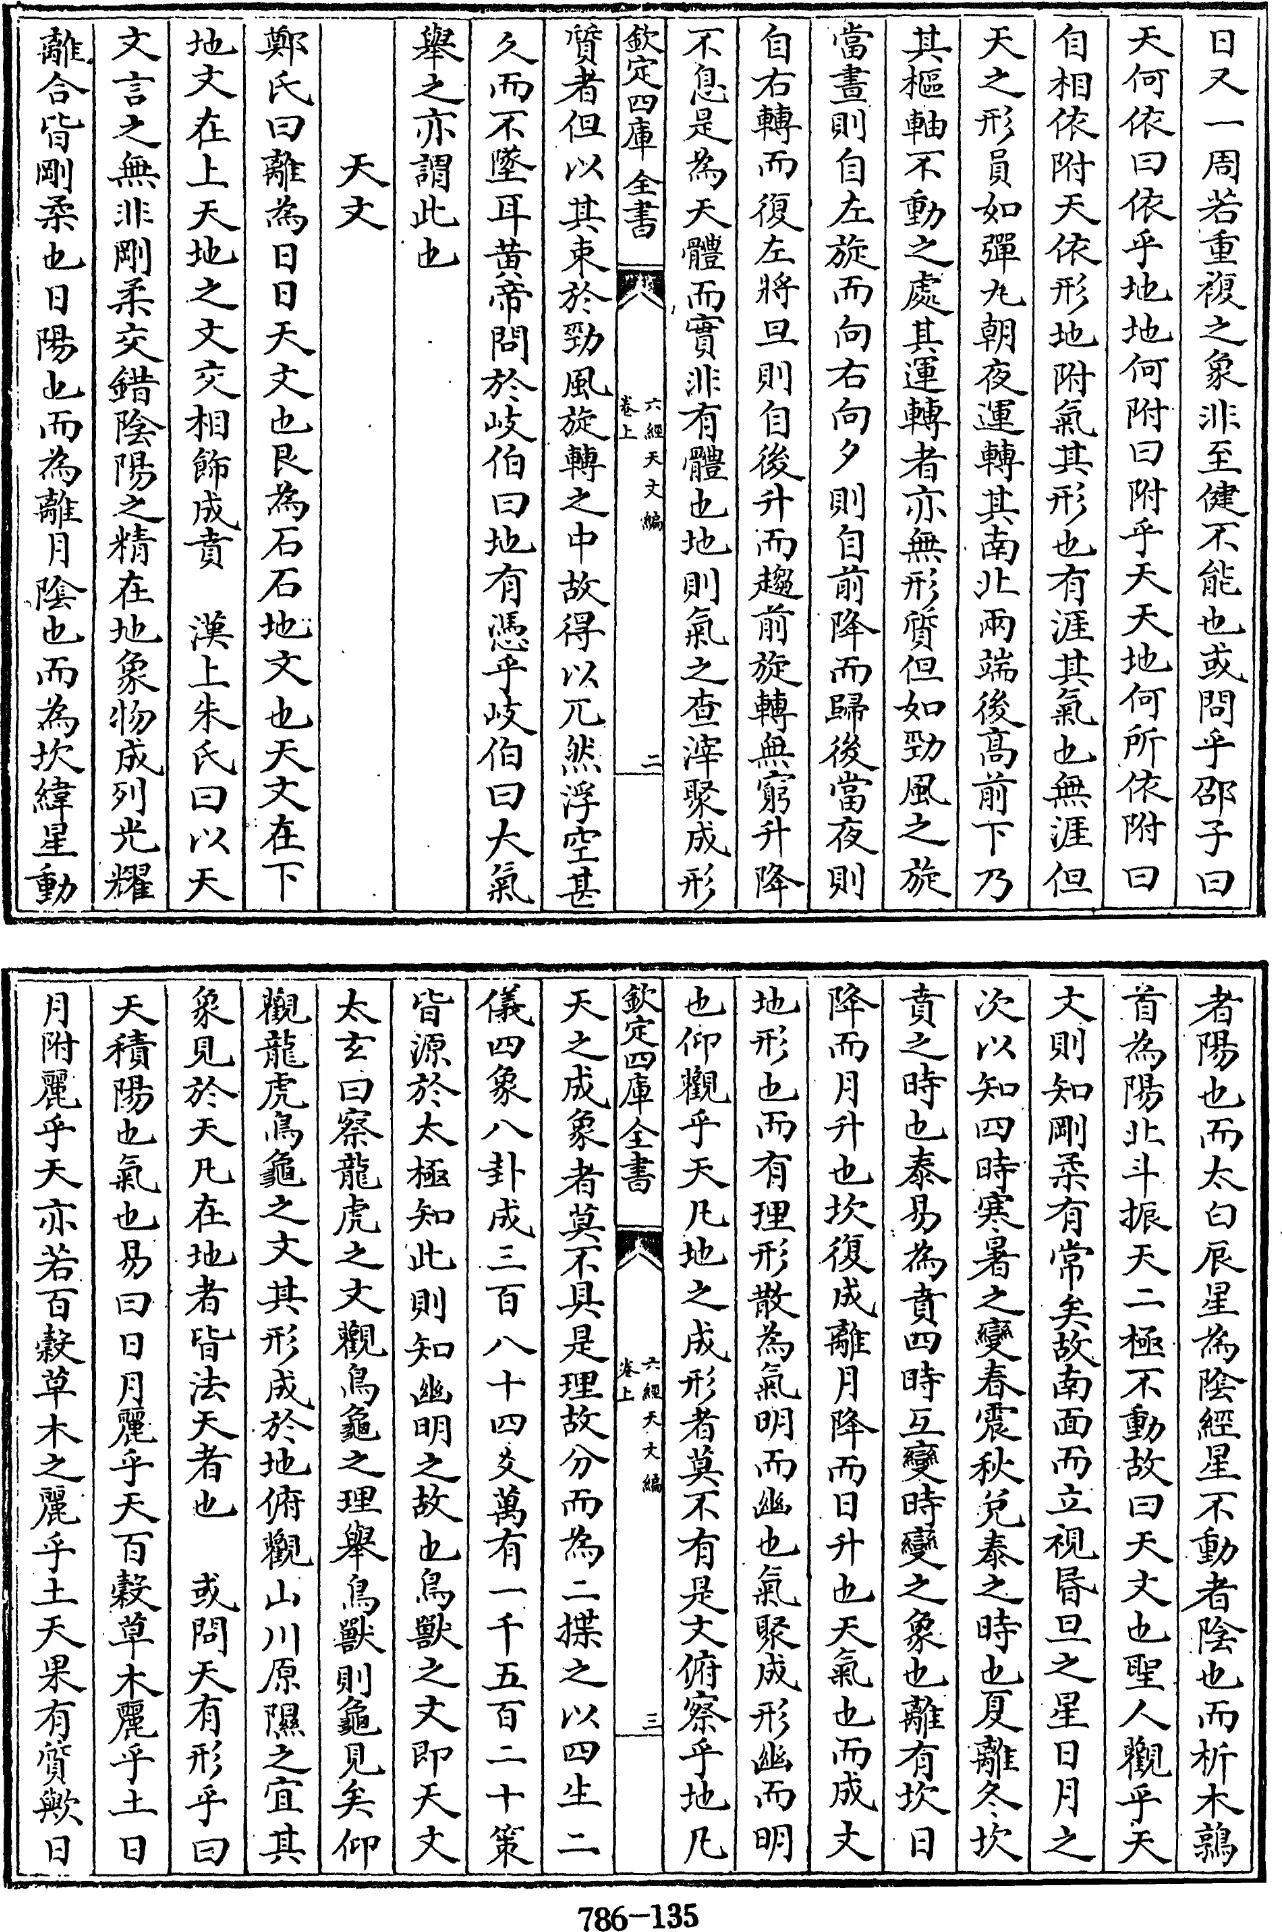 日又一周若重複之象非至健不能也或問乎邵子曰
天何依曰依乎地地何附曰附乎天天地何所依附曰
自相依附天依形地附氣其形也有涯其氣也無涯但
天之形員如彈丸朝夜運轉其南北兩端後高前下乃
其樞軸不動之處其運轉者亦無形質但如勁風之旋
當晝則自左旋而向右向夕則自前降而歸後當夜則
自右轉而復左將旦則自後升而趨前旋轉無窮升降
不息是為天體而實非有體也地則氣之查滓聚成形
欽定四庫全書
六經天文編
卷上
二
質者但以其束於勁風旋轉之中故得以兀然浮空甚
久而不墜耳黄帝問於岐伯曰地有憑乎岐伯曰大氣
舉之亦謂此也
天文
鄭氏曰離為日日天文也艮為石石地文也天文在下
地文在上天地之文交相飾成賁　漢上朱氏曰以天
文言之無非剛柔交錯陰陽之精在地象物成列光耀
離合皆剛柔也日陽也而為離月陰也而為坎緯星動
者陽也而太白辰星為陰經星不動者陰也而析木鶉
首為陽北斗振天二極不動故曰天文也聖人觀乎天
文則知剛柔有常矣故南面而立視昏旦之星日月之
次以知四時寒暑之變春震秋兌泰之時也夏離冬坎
賁之時也泰易為賁四時互變時變之象也離有坎日
降而月升也坎復成離月降而日升也天氣也而成文
地形也而有理形散為氣明而幽也氣聚成形幽而明
也仰觀乎天凡地之成形者莫不有是文俯察乎地凡
欽定四庫全書
六經天文編
卷上
三
天之成象者莫不具是理故分而為二揲之以四生二
儀四象八卦成三百八十四爻萬有一千五百二十策
皆源於太極知此則知幽明之故也鳥獸之文即天文
太玄曰察龍虎之文觀鳥龜之理舉鳥獸則龜見矣仰
觀龍虎鳥龜之文其形成於地俯觀山川原隰之宜其
象見於天凡在地者皆法天者也　或問天有形乎曰
天積陽也氣也易曰日月麗乎天百榖草木麗乎土日
月附麗乎天亦若百榖草木之麗乎土天果有質歟曰
786-135